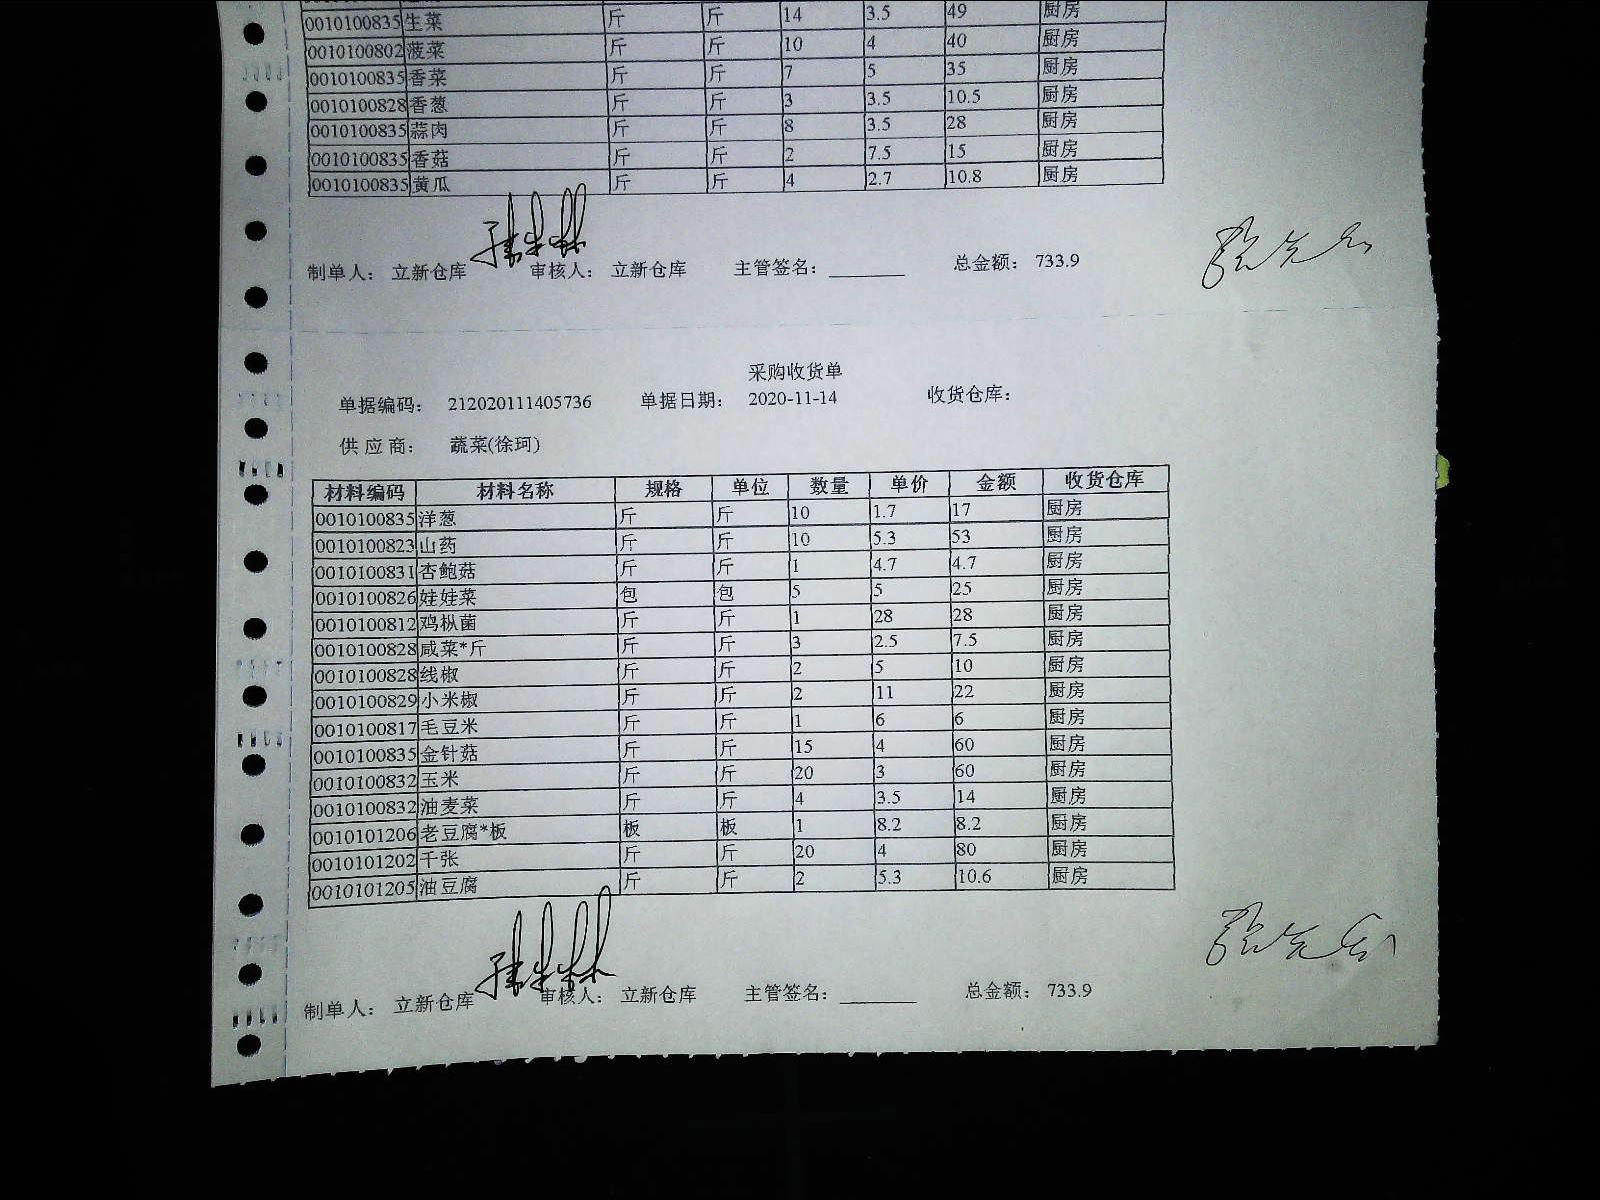 0010100835 生菜 斤 斤 14 3.5 49 厨房
0010100802 菠菜 斤 斤 10 4 40 厨房
0010100835 香菜 斤 斤 7 5 35 厨房
0010100828 香葱 斤 斤 3 3.5 10.5 厨房
0010100835 蒜肉 斤 斤 8 3.5 28 厨房
0010100835 香菇 斤 斤 2 7.5 15 厨房
0010100835 黄瓜 斤 斤 4 2.7 10.8 厨房
制单人: 立新仓库 审核人: 立新仓库 主管签名: 总金额: 733.9
采购收货单
单据编码: 212020111405736 单据日期: 2020-11-14 收货仓库:
供应商: 蔬菜(徐珂)
材料编码 材料名称 规格 单位 数量 单价 金额 收货仓库
0010100835 洋葱 斤 斤 10 1.7 17 厨房
0010100823 山药 斤 斤 10 5.3 53 厨房
0010100831 杏鲍菇 斤 斤 1 4.7 4.7 厨房
0010100826 娃娃菜 包 包 5 5 25 厨房
0010100812 鸡枞菌 斤 斤 1 28 28 厨房
0010100828 咸菜*斤 斤 斤 3 2.5 7.5 厨房
0010100828 线椒 斤 斤 2 5 10 厨房
0010100829 小米椒 斤 斤 2 11 22 厨房
0010100817 毛豆米 斤 斤 1 6 6 厨房
0010100835 金针菇 斤 斤 15 4 60 厨房
0010100832 玉米 斤 斤 20 3 60 厨房
0010100832 油麦菜 斤 斤 4 3.5 14 厨房
0010101206 老豆腐*板 板 板 1 8.2 8.2 厨房
0010101202 千张 斤 斤 20 4 80 厨房
0010101205 油豆腐 斤 斤 2 5.3 10.6 厨房
制单人: 立新仓库 审核人: 立新仓库 主管签名: 总金额: 733.9